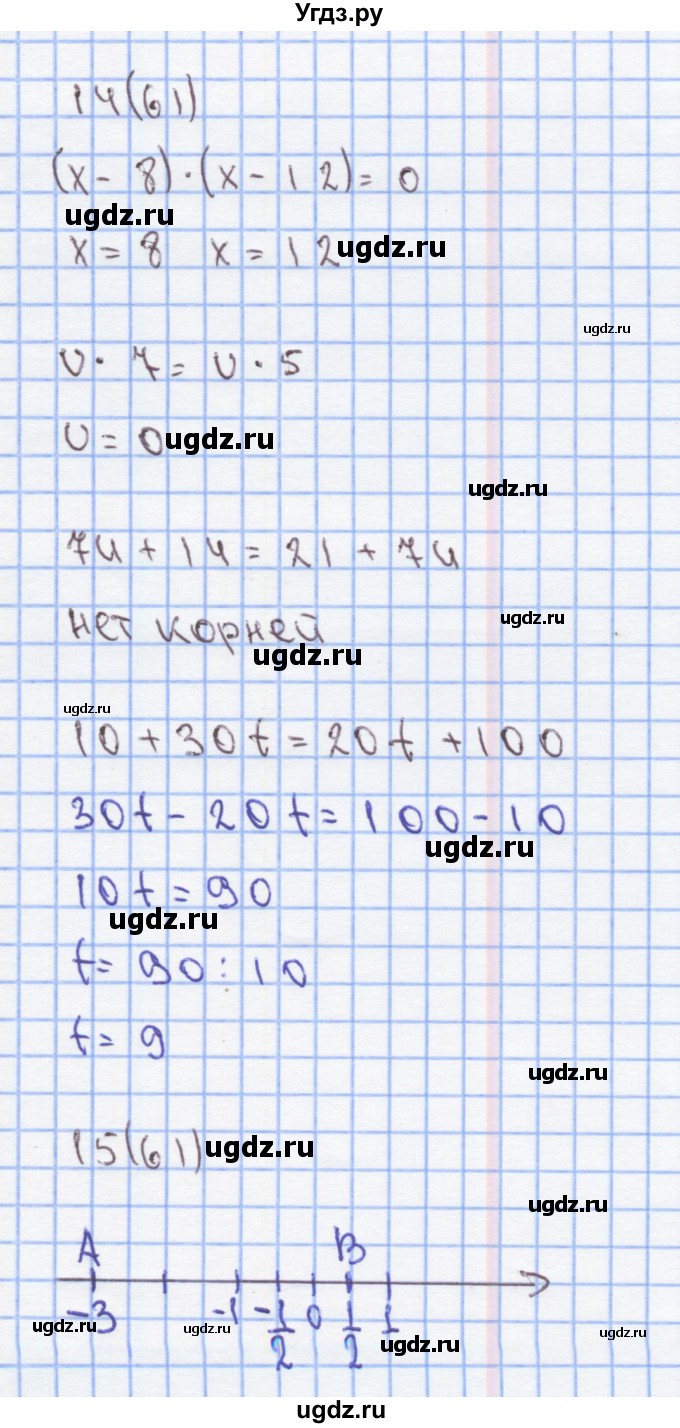 Угдз.ру
14(61)
(x - 8) · (x - 12) = 0
ugdz.ru
x = 8 x = 12 ugdz.ru
ugdz.ru
υ · 7 = υ · 5
υ = 0 ugdz.ru
ugdz.ru
7u + 14 = 21 + 7u
нет корней
ugdz.ru
ugdz.ru
ugdz.ru
10 + 30t = 20t + 100
30t - 20t = 100 - 10
ugdz.ru
10t = 90
ugdz.ru
t = 90 : 10
t = 9
ugdz.ru
15(61) ugdz.ru
ugdz.ru
A B
-3 -1 -1/2 0 1/2 1
ugdz.ru ugdz.ru ugdz.ru ugdz.ru
ugdz.ru